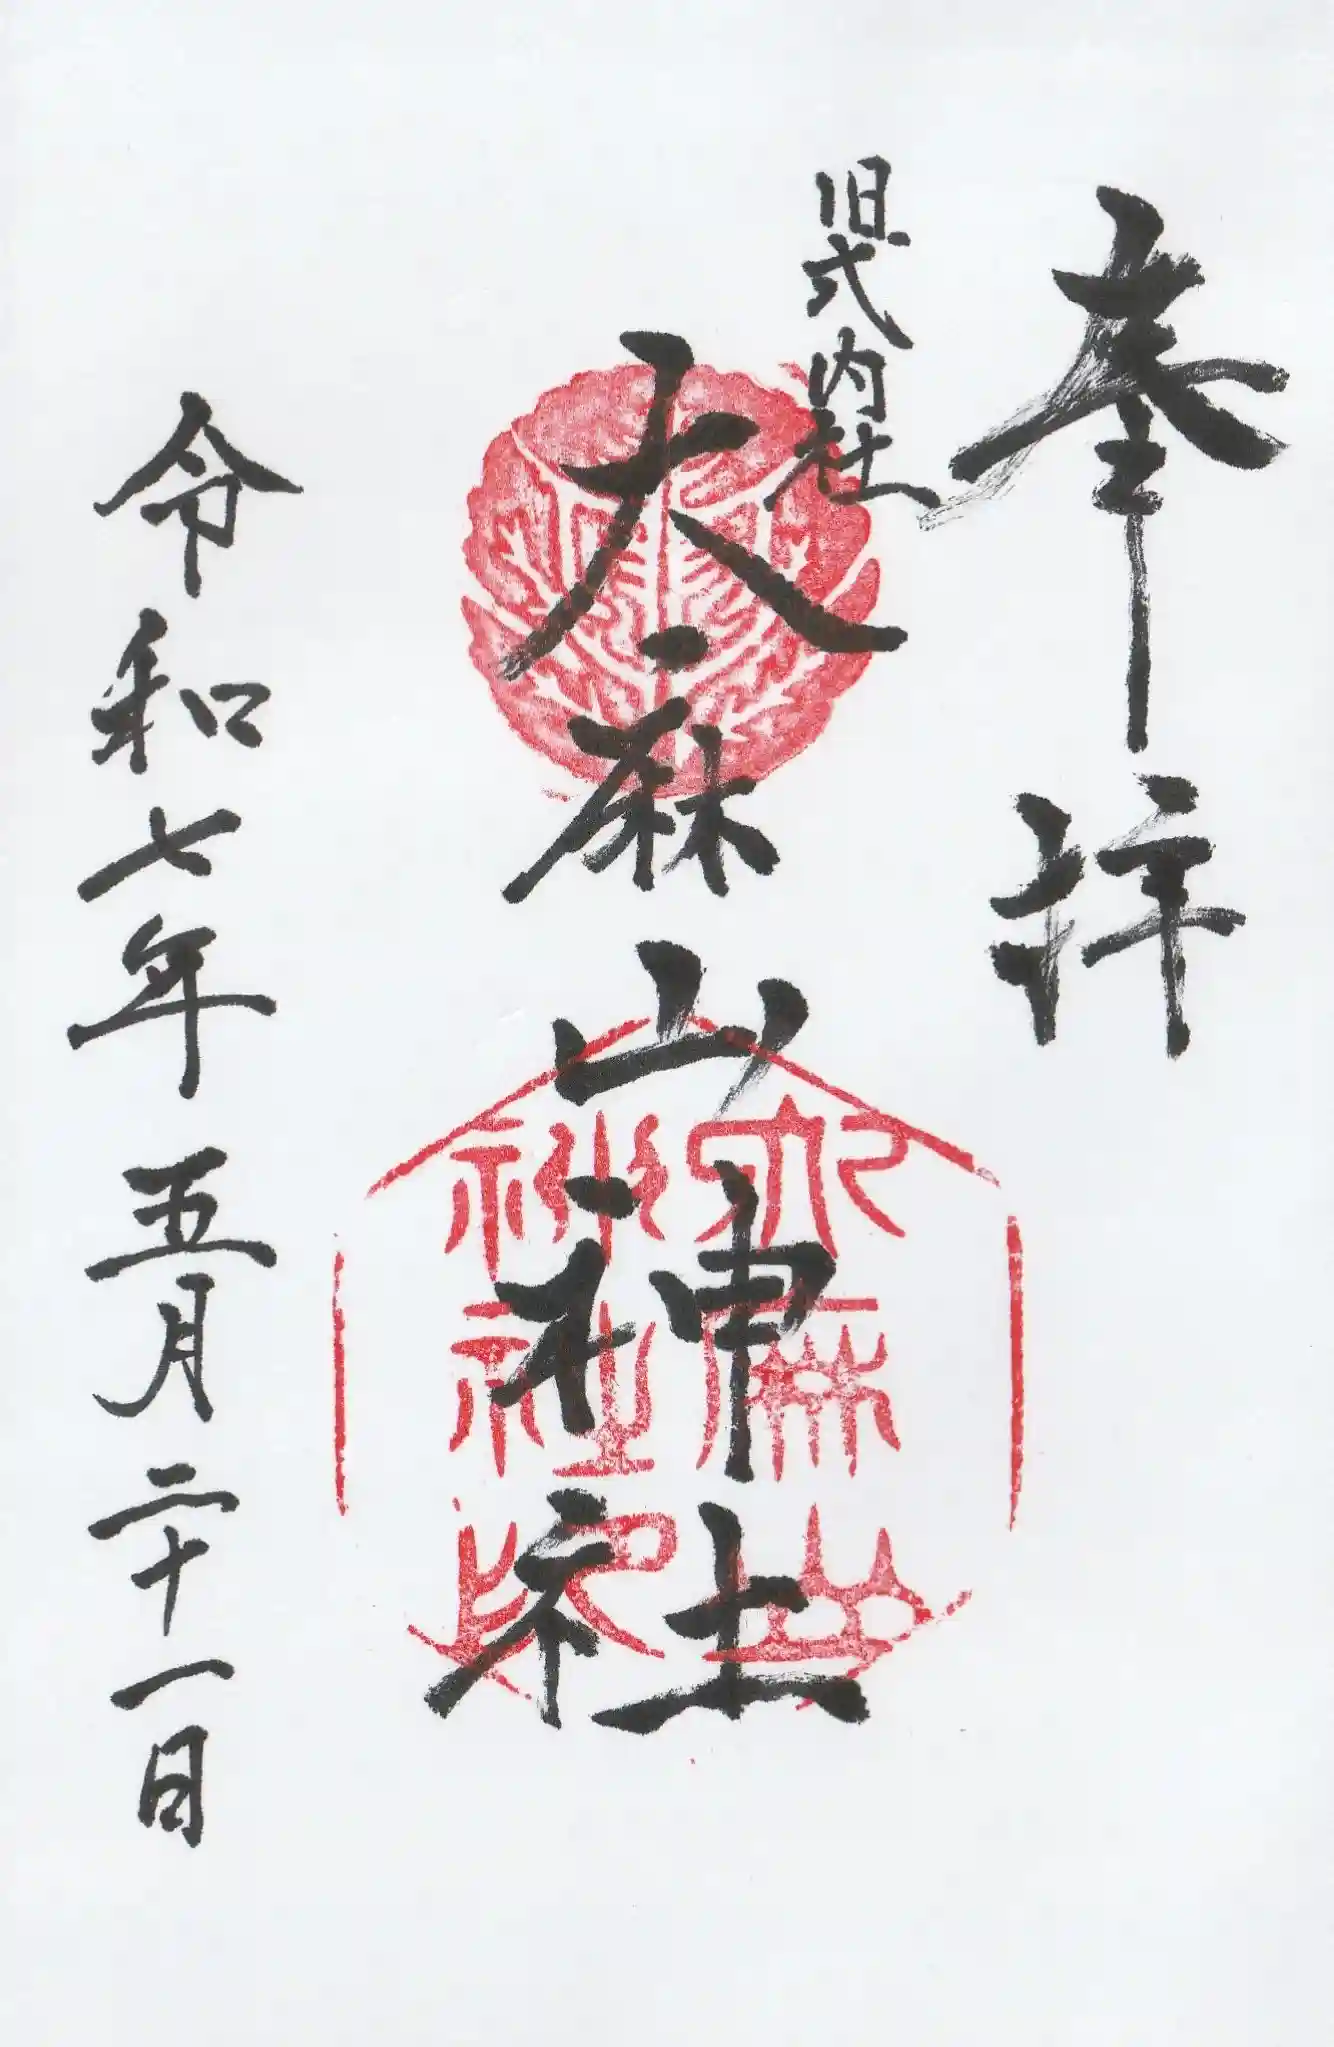 奉拝
旧式内社
大麻山神社
令和七年五月二十一日
大麻山
神社印